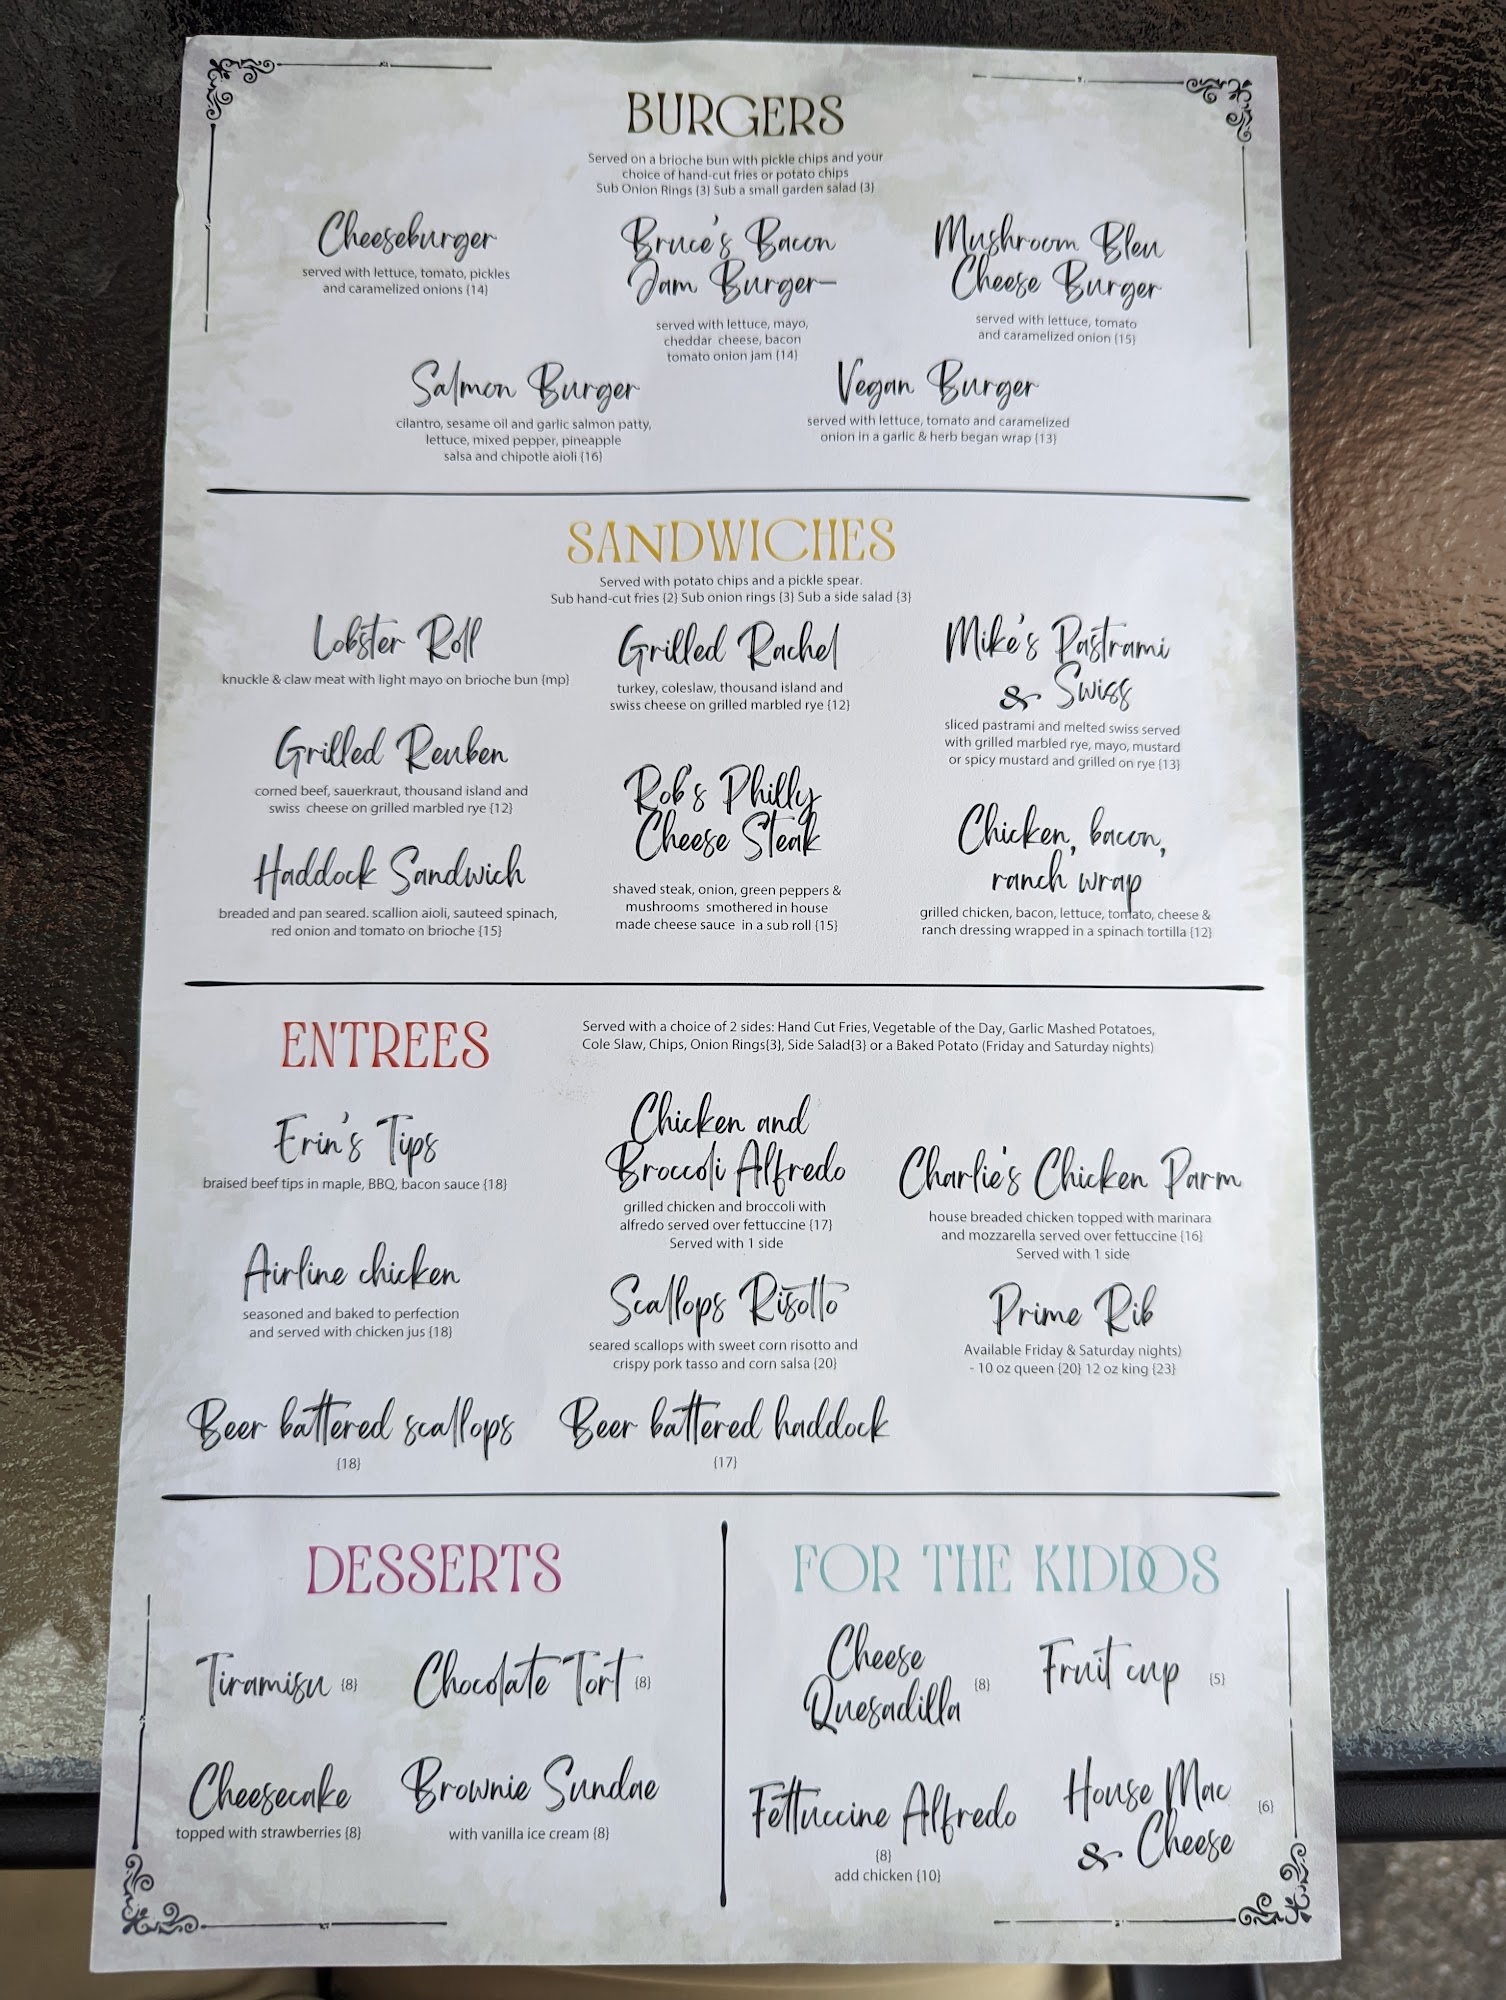 BURGERS
Served on a brioche bun with pickle chips and your
choice of hand-cut fries or potato chips
Sub Onion Rings {3} Sub a small garden salad {3}
Cheeseburger
served with lettuce, tomato, pickles
and caramelized onions {14}
Bruce's Bacon
Jam Burger–
served with lettuce, mayo,
cheddar cheese, bacon
tomato onion jam {14}
Mushroom Bleu
Cheese Burger
served with lettuce, tomato
and caramelized onion {15}
Salmon Burger
cilantro, sesame oil and garlic salmon patty,
lettuce, mixed pepper, pineapple
salsa and chipotle aioli {16}
Vegan Burger
served with lettuce, tomato and caramelized
onion in a garlic & herb began wrap {13}
SANDWICHES
Served with potato chips and a pickle spear.
Sub hand-cut fries {2} Sub onion rings {3} Sub a side salad {3}
Lobster Roll
knuckle & claw meat with light mayo on brioche bun {mp}
Grilled Rachel
turkey, coleslaw, thousand island and
swiss cheese on grilled marbled rye {12}
Mike's Pastrami
& Swiss
sliced pastrami and melted swiss served
with grilled marbled rye, mayo, mustard
or spicy mustard and grilled on rye {13}
Grilled Reuben
corned beef, sauerkraut, thousand island and
swiss cheese on grilled marbled rye {12}
Rob's Philly
Cheese Steak
shaved steak, onion, green peppers &
mushrooms smothered in house
made cheese sauce in a sub roll {15}
Chicken, bacon,
ranch wrap
grilled chicken, bacon, lettuce, tomato, cheese &
ranch dressing wrapped in a spinach tortilla {12}
Haddock Sandwich
breaded and pan seared. scallion aioli, sauteed spinach,
red onion and tomato on brioche {15}
ENTREES
Served with a choice of 2 sides: Hand Cut Fries, Vegetable of the Day, Garlic Mashed Potatoes,
Cole Slaw, Chips, Onion Rings{3}, Side Salad{3} or a Baked Potato (Friday and Saturday nights)
Erin's Tips
braised beef tips in maple, BBQ, bacon sauce {18}
Chicken and
Broccoli Alfredo
grilled chicken and broccoli with
alfredo served over fettuccine {17}
Served with 1 side
Charlie's Chicken Parm
house breaded chicken topped with marinara
and mozzarella served over fettuccine {16}
Served with 1 side
Airline chicken
seasoned and baked to perfection
and served with chicken jus {18}
Scallops Risotto
seared scallops with sweet corn risotto and
crispy pork tasso and corn salsa {20}
Prime Rib
Available Friday & Saturday nights)
- 10 oz queen {20} 12 oz king {23}
Beer battered scallops
{18}
Beer battered haddock
{17}
DESSERTS
Tiramisu {8}
Chocolate Tort {8}
Cheesecake
topped with strawberries {8}
Brownie Sundae
with vanilla ice cream {8}
FOR THE KIDDOS
Cheese
Quesadilla {8}
Fruit cup {5}
Fettuccine Alfredo
{8}
add chicken {10}
House Mac
& Cheese {6}